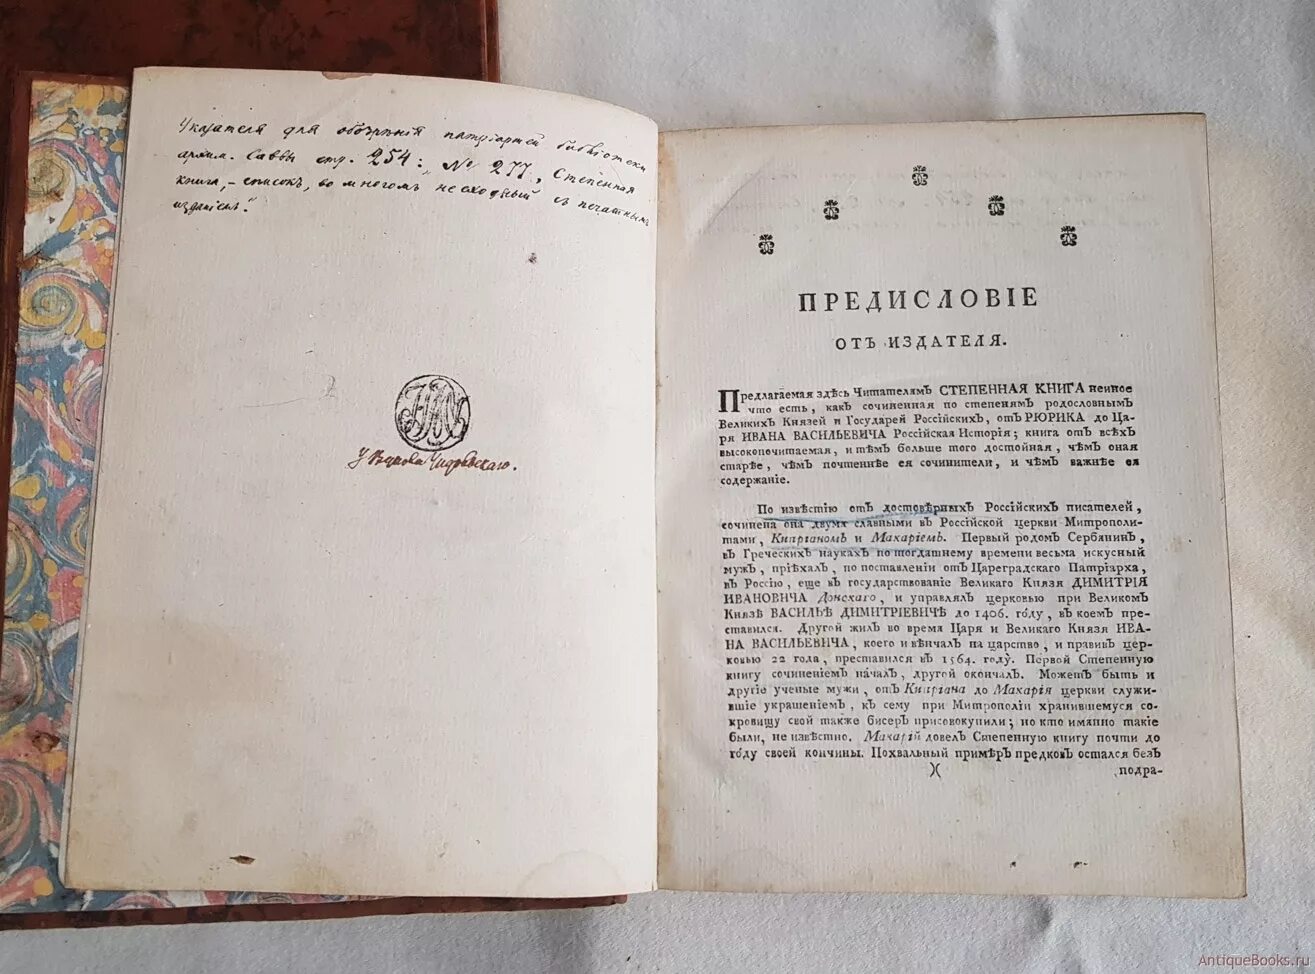 Указателя для обозрѣнія патріаршей библіотеки
архим. Саввы стр. 254: № 277, Степенная
книга, – списокъ, во многомъ не сходный съ печатнымъ
изданіемъ."
ПРЕДИСЛОВІЕ
ОТЪ ИЗДАТЕЛЯ.
Предлагаемая здѣсь Читателямъ СТЕПЕННАЯ КНИГА неиное
что есть, какъ сочиненная по степенямъ родословнымъ
Великихъ Князей и Государей Россійскихъ, отъ РЮРИКА до Ца-
ря ИВАНА ВАСИЛЬЕВИЧА Россійская Исторія; книга отъ всѣхъ
высокопочитаемая, и тѣмъ больше того достойная, чѣмъ оная
старѣе, чѣмъ почтеннѣе ея сочинители, и чѣмъ важнѣе ея
содержаніе.
По извѣстію отъ достовѣрныхъ Россійскихъ писателей,
сочинена она двумя славными въ Россійской церкви Митрополи-
тами, Кипріаномъ и Макаріемъ. Первый родомъ Сербянинъ,
въ Греческихъ наукахъ по тогдатнему времени весьма искусный
мужъ, пріѣхалъ, по поставленіи отъ Цареградскаго Патріарха,
въ Россію, еще въ государствованіе Великаго Князя ДИМИТРІЯ
ИВАНОВИЧА Донскаго, и управлялъ церковью при Великомъ
Князѣ ВАСИЛЬѢ ДИМИТРІЕВИЧѢ до 1406. году, въ коемъ пре-
ставился. Другой жилъ во время Царя и Великаго Князя ИВА-
НА ВАСИЛЬЕВИЧА, коего и вѣнчалъ на царство, и правивъ цер-
ковью 22 года, преставился въ 1564. году. Первой Степенную
книгу сочиненіемъ началъ, другой окончалъ. Можетъ быть и
другіе ученые мужи, отъ Кипріана до Макарія церкви служи-
вшіе украшеніемъ, къ сему при Митрополіи хранившемуся со-
кровищу свой также бисеръ присовокупили; но кто имянно такіе
были, не извѣстно. Макарій довелъ Степенную книгу почти до
году своей кончины. Похвальный примѣръ предковъ остался безъ
подра-
AntiqueBooks.ru